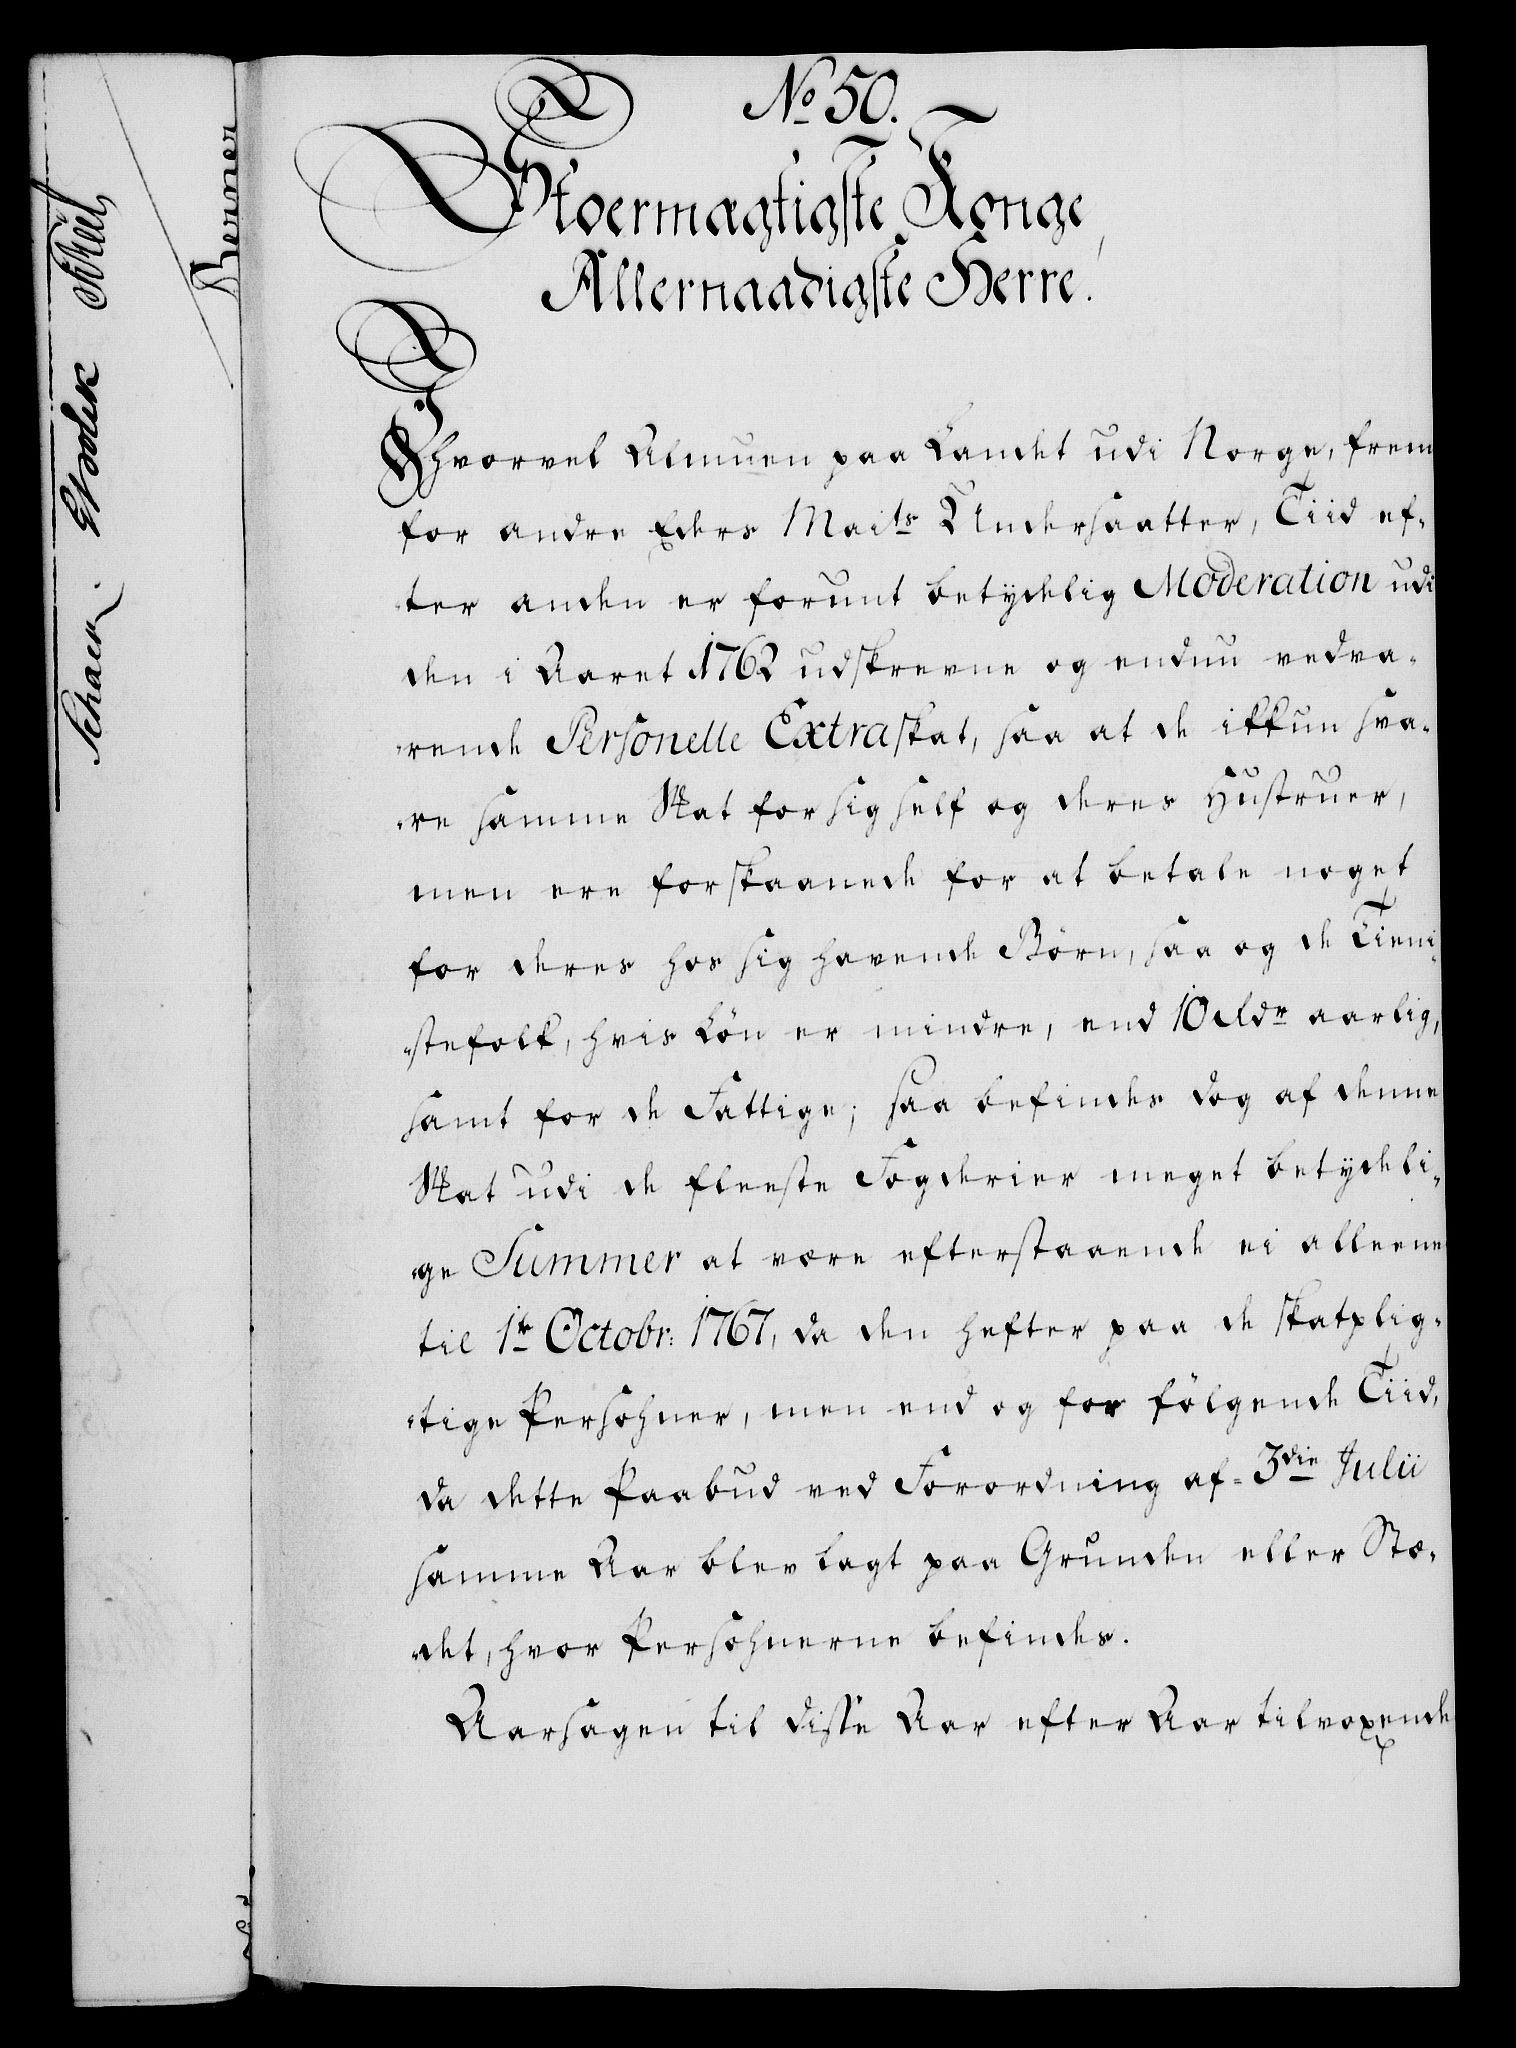 No 50.
Stoermægtigste Konge,
Allernaadigste Herre.
Ihvorvel Almuen paa Landet udi Norge, frem
for andre Eders Maits Undersaatter, Tiid ef-
ter anden er forunt betydelig Moderation udi
den i Aaret 1762 udskrevne og endnu vedva-
rende Personelle Extraskat, saa at de ikkun sva-
re samme Skat for sig self og deres Hustruer,
men ere forskaanede for at betale noget
for deres hos sig havende Börn, saa og de Tieni-
stefolk, hvis Lön er mindre, end 10 Rdr aarlig,
samt for de Fattige; saa befindes dog af denne
Skat udi de fleeste Fogderier meget betydeli-
ge Summer at være efterstaaende ei alleene
til 1te Octobr: 1767, da den hefter paa de skatplig-
tige Persohner, men end og for fölgende Tiid,
da dette Paabud ved Forordning af 3die Julii
samme Aar blev lagt paa Grunden eller Stæ-
det, hvor Persohnerne befindes.
Aarsagen til disse Aar efter Aar tilvoxende
Schaer.
Berner